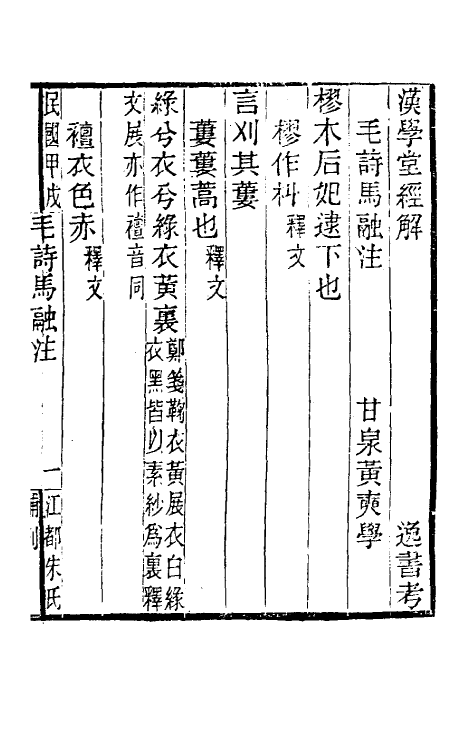 漢學堂經解 逸書考
毛詩馬融注 甘泉黃奭學
樛木后妃逮下也
樛作朻釋文
言刈其蔞
蔞蔞蒿也釋文
綠兮衣兮綠衣黃裏鄭箋鞠衣黃展衣白綠
衣黑皆以素紗爲裏釋
文展亦作襢音同
襢衣色赤釋文
民國甲戌 毛詩馬融注 一 江都朱氏
補刊